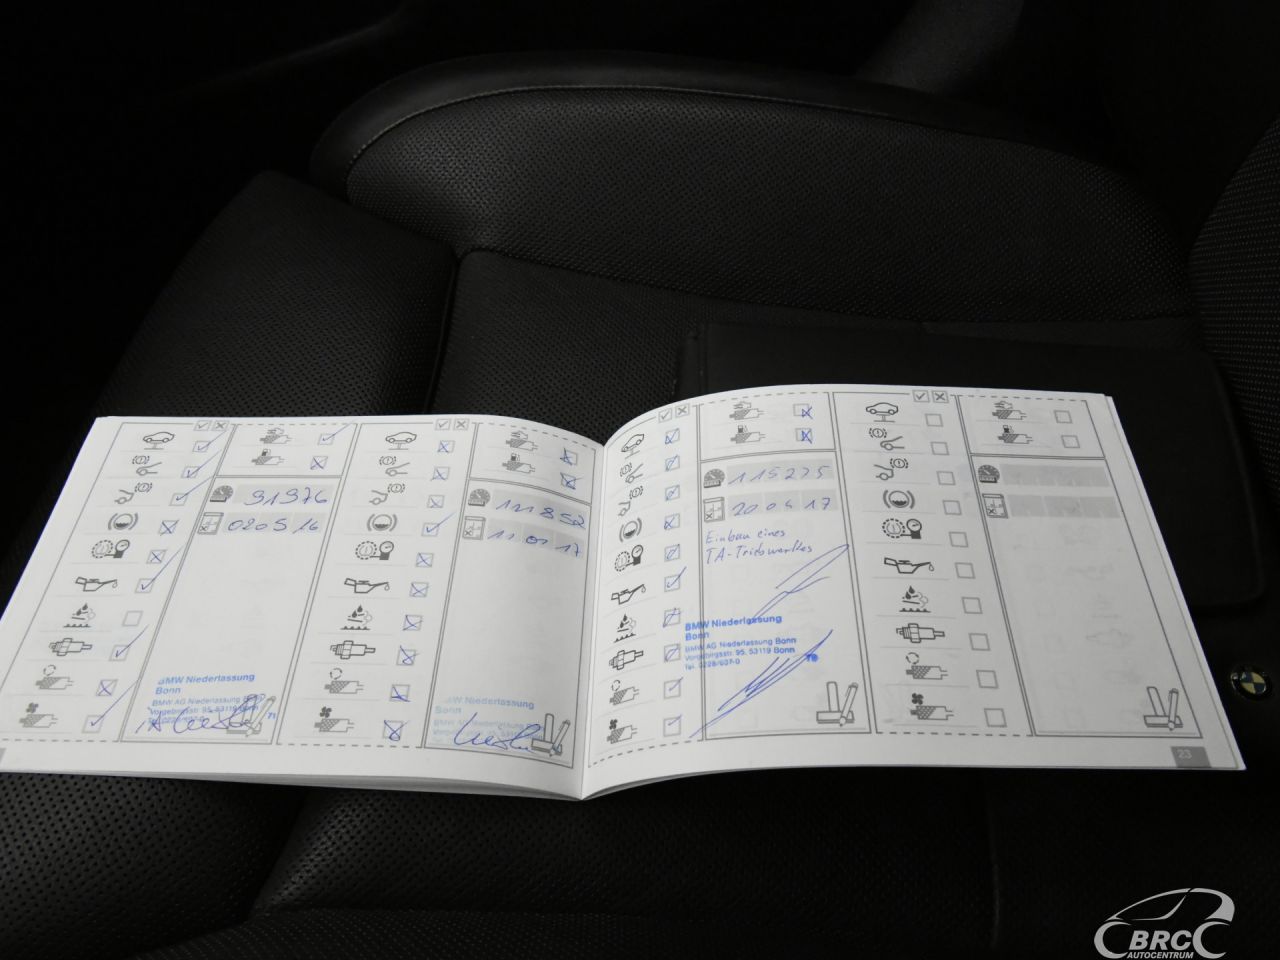 91976
020516
BMW Niederlassung
Bonn
BMW AG Niederlassung Bonn
Vorgebirgsstr. 95, 53119 Bonn
71
111852
11.01 17
BMW Niederlassung
Bonn
BMW AG Niederlassung Bonn
115275
200517
Einbau eines
TA-Triebwerkes
BMW Niederlassung
Bonn
BMW AG Niederlassung Bonn
Vorgebirgsstr. 95, 53119 Bonn
Tel. 0228/607-0
23
BRC
AUTOCENTRUM